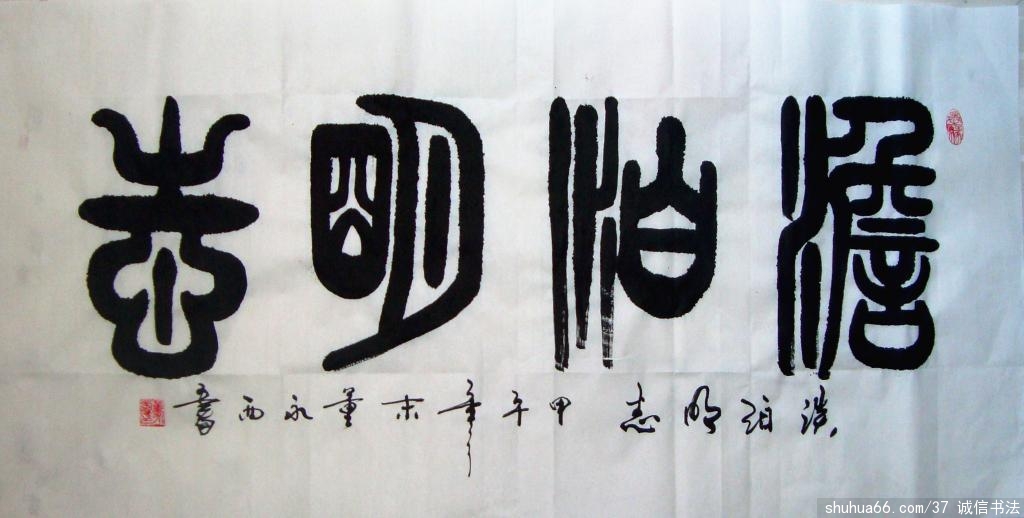 澹泊明志
淡泊明志 甲午年末董永西書
shuhua66.com/37 诚信书法